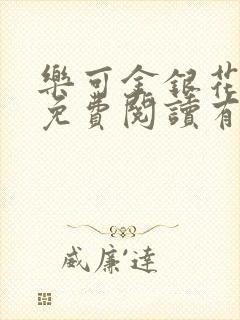 樂可金銀花
免費閱讀有
威廉·達